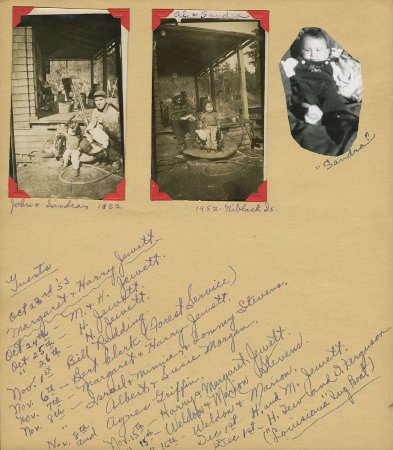 Al. & Sandra
John & Sandra, 1952
1952 Niblack Is.
"Sandra"
Guests
Oct 23rd 53
Margaret & Harry Jewett
Oct 24th - M. & H. Jewett.
Oct 25th - H. Jewett.
" 26th - H. Jewett.
Bill Redding
Nov. 1st - Bert Clark (Forest Service)
Nov. 6th - Margaret & Harry Jewett.
Nov. 7th - Israel & Minnie & Tommy Stevens.
" 8th - Albert & Susie Morgan.
Nov. 8th and Agnes Griffin.
Nov. 15th - Harry & Margaret Jewett.
" 15th - Weldon & Marion Stevens.
" 16th - Weldon & Marion
Dec 1st - H. and M. Jewett.
Dec 1st - H. and D. Ferguson
("Louisiana Tug Boat")